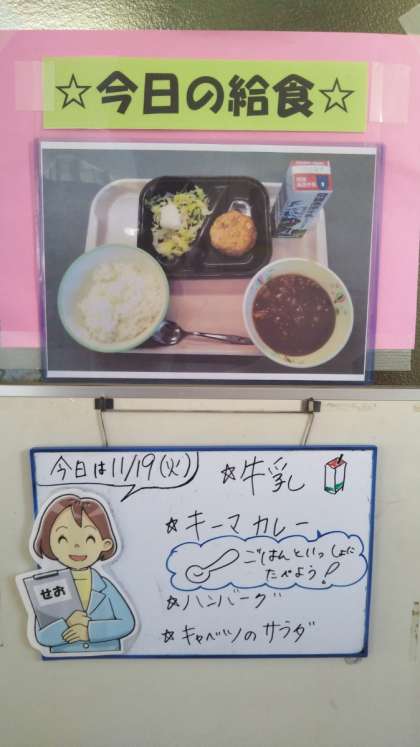 ☆今日の給食☆
今日は11/19(火)
☆牛乳
☆キーマカレー
ごはんといっしょに
たべよう!
☆ハンバーグ
☆キャベツのサラダ
せお